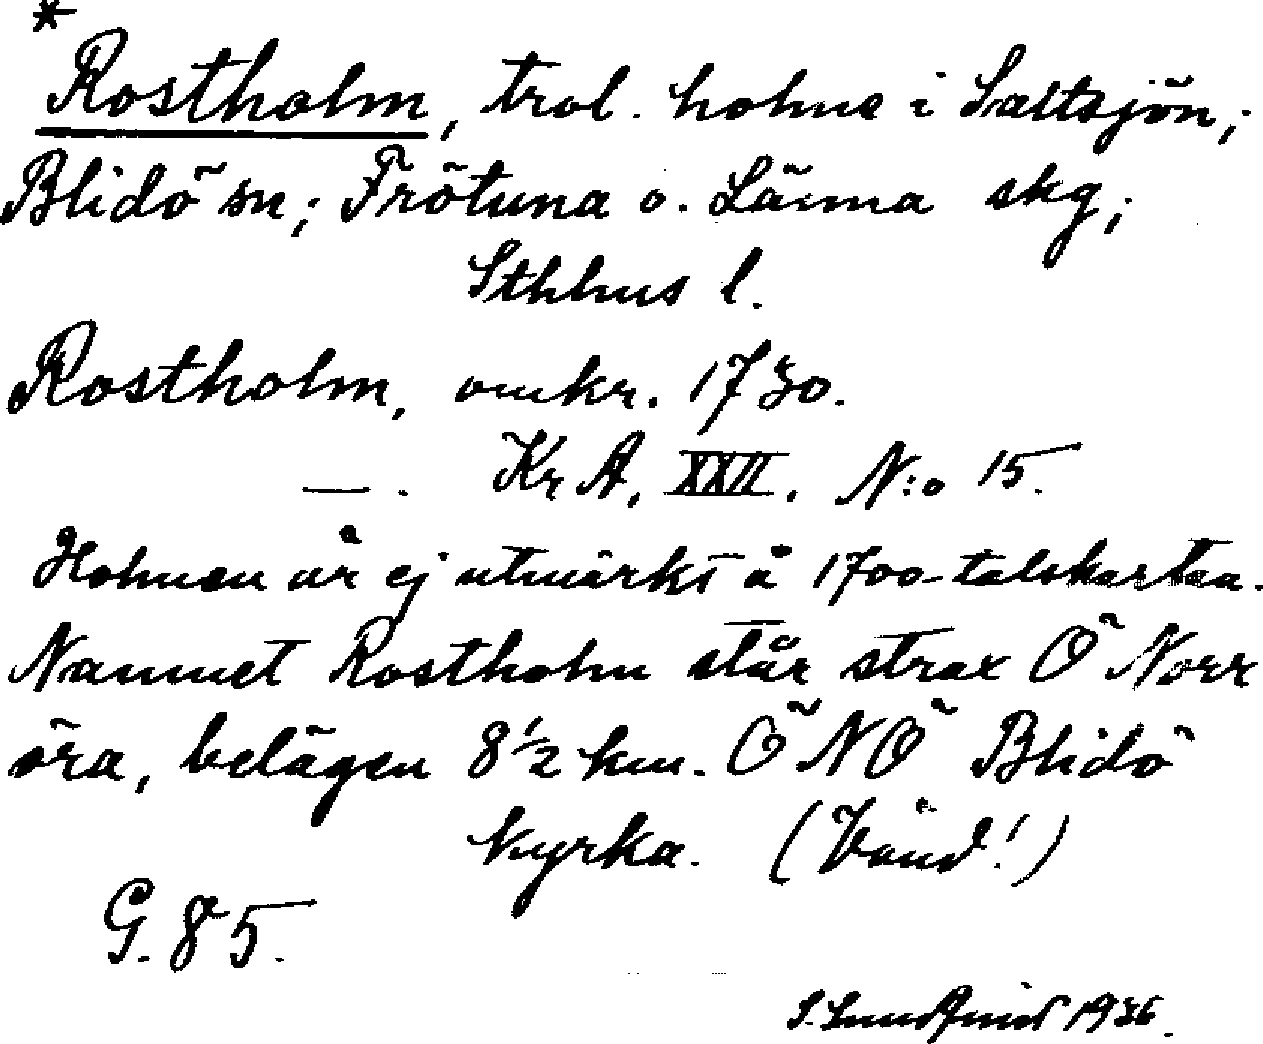 *
Rostholm, trol. holme i Saltsjön;
Blidö sn; Frötuna o. Länna skg;
Sthlms l.
Rostholm, omkr. 1730.
— . KrA, XXII. N:o 15.
Holmen är ej utmärkt å 1700-talskartan.
Namnet Rostholm står strax Ö Norr
öra, belägen 8 1/2 km. ÖNÖ Blidö
kyrka. (Vänd!)
G. 85.
S. 1936.